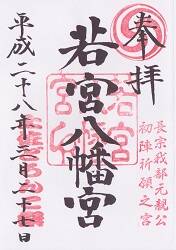 奉拝
長宗我部元親公
初陣祈願之宮
若宮八幡宮
平成二十八年三月二十七日